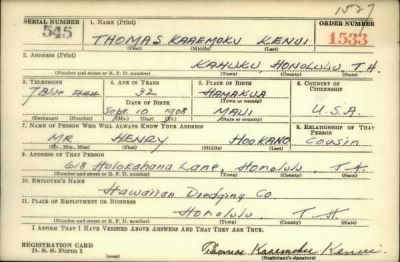 1527
SERIAL NUMBER 1. NAME (Print) ORDER NUMBER
545 THOMAS KAAEMOKU KENUI 1533
(First) (Middle) (Last)
2. ADDRESS (Print)
KAHUKU HONOLULU, T.H.
(Number and street or R. F. D. number) (Town) (County) (State)
3. TELEPHONE 4. AGE IN YEARS 5. PLACE OF BIRTH 6. COUNTRY OF CITIZENSHIP
32 HAMAKUA
DATE OF BIRTH (Town or county)
Sept. 10 1908 MAUI U.S.A.
(Exchange) (Number) (Mo.) (Day) (Yr.) (State or country)
7. NAME OF PERSON WHO WILL ALWAYS KNOW YOUR ADDRESS 8. RELATIONSHIP OF THAT PERSON
MR HENRY HOOKANO Cousin
(Mr., Mrs., Miss) (First) (Middle) (Last)
9. ADDRESS OF THAT PERSON
618 Holokahana Lane, Honolulu T.H.
(Number and street or R. F. D. number) (Town) (County) (State)
10. EMPLOYER'S NAME
Hawaiian Dredging Co
11. PLACE OF EMPLOYMENT OR BUSINESS
Honolulu T.H
(Number and street or R. F. D. number) (Town) (County) (State)
I AFFIRM THAT I HAVE VERIFIED ABOVE ANSWERS AND THAT THEY ARE TRUE.
REGISTRATION CARD
D. S. S. Form 1 (over) Thomas Kaaemoku Kenui
(Registrant's signature)